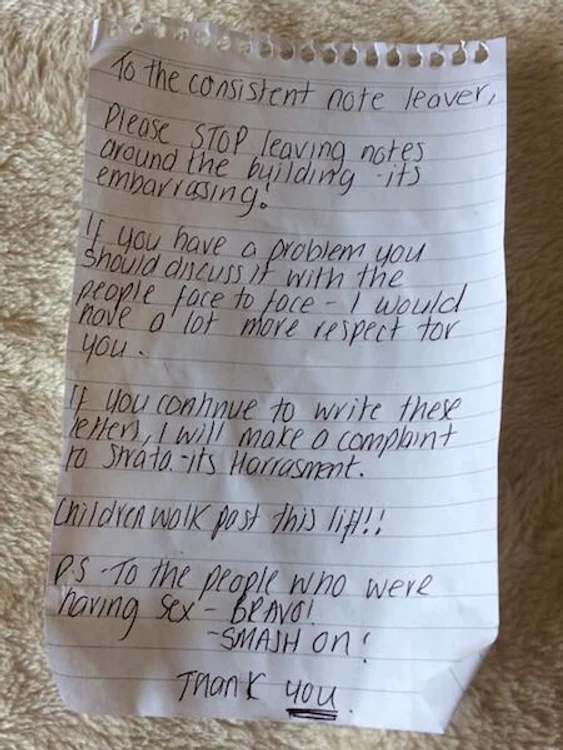 To the consistent note leaver,
Please STOP leaving notes
around the building - its
embarrasing!
If you have a problem you
should discuss it with the
people face to face - I would
have a lot more respect for
you.
If you continue to write these
letters, I will make a complaint
to Strata - its Harrasment.
Children walk past this lift!!
P.S - To the people who were
having sex - BRAVO!
- SMASH ON!
Thank you.